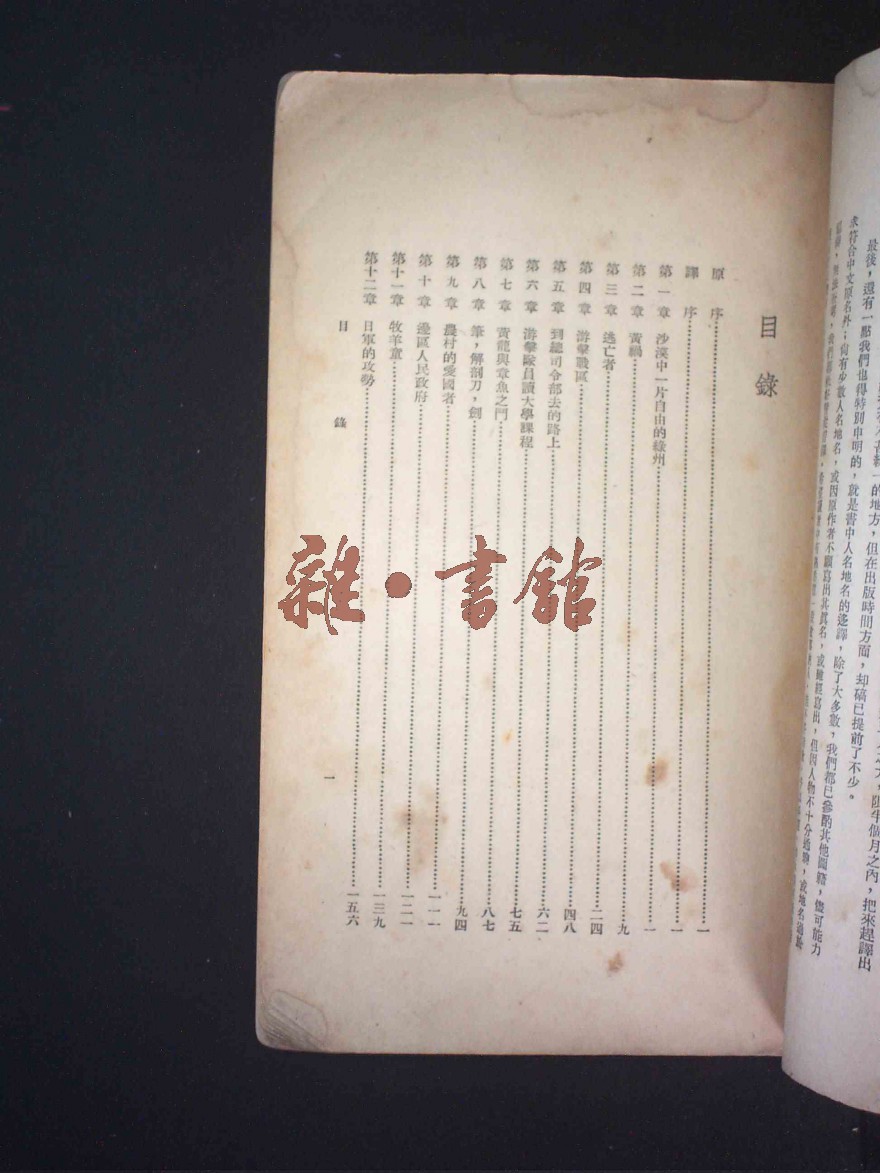 最後，還有一點我們也得特別申明的，就是書中人名地名的迻譯，除了大多數，我們都已參酌其他圖籍，儘可能力
求符合中文原名外；尚有少數人名地名，或因原作者不願寫出其眞名，或雖經寫出，但因人物不十分
的地方，但在出版時間方面，却碻已提前了不少。
個月之內，把來趕譯出
目錄
原序……一
譯序……一
第一章 沙漠中一片自由的綠州……一
第二章 黃禍……九
第三章 逃亡者……二四
第四章 游擊戰區……四八
第五章 到總司令部去的路上……六二
第六章 游擊隊員讀大學課程……七五
第七章 黃龍與章魚之鬥……八七
第八章 筆，解剖刀，劍……九四
第九章 農村的愛國者……一一一
第十章 邊區人民政府……一二一
第十一章 牧羊童……一三九
第十二章 日軍的攻勢……一五六
目錄
一
雜·書館